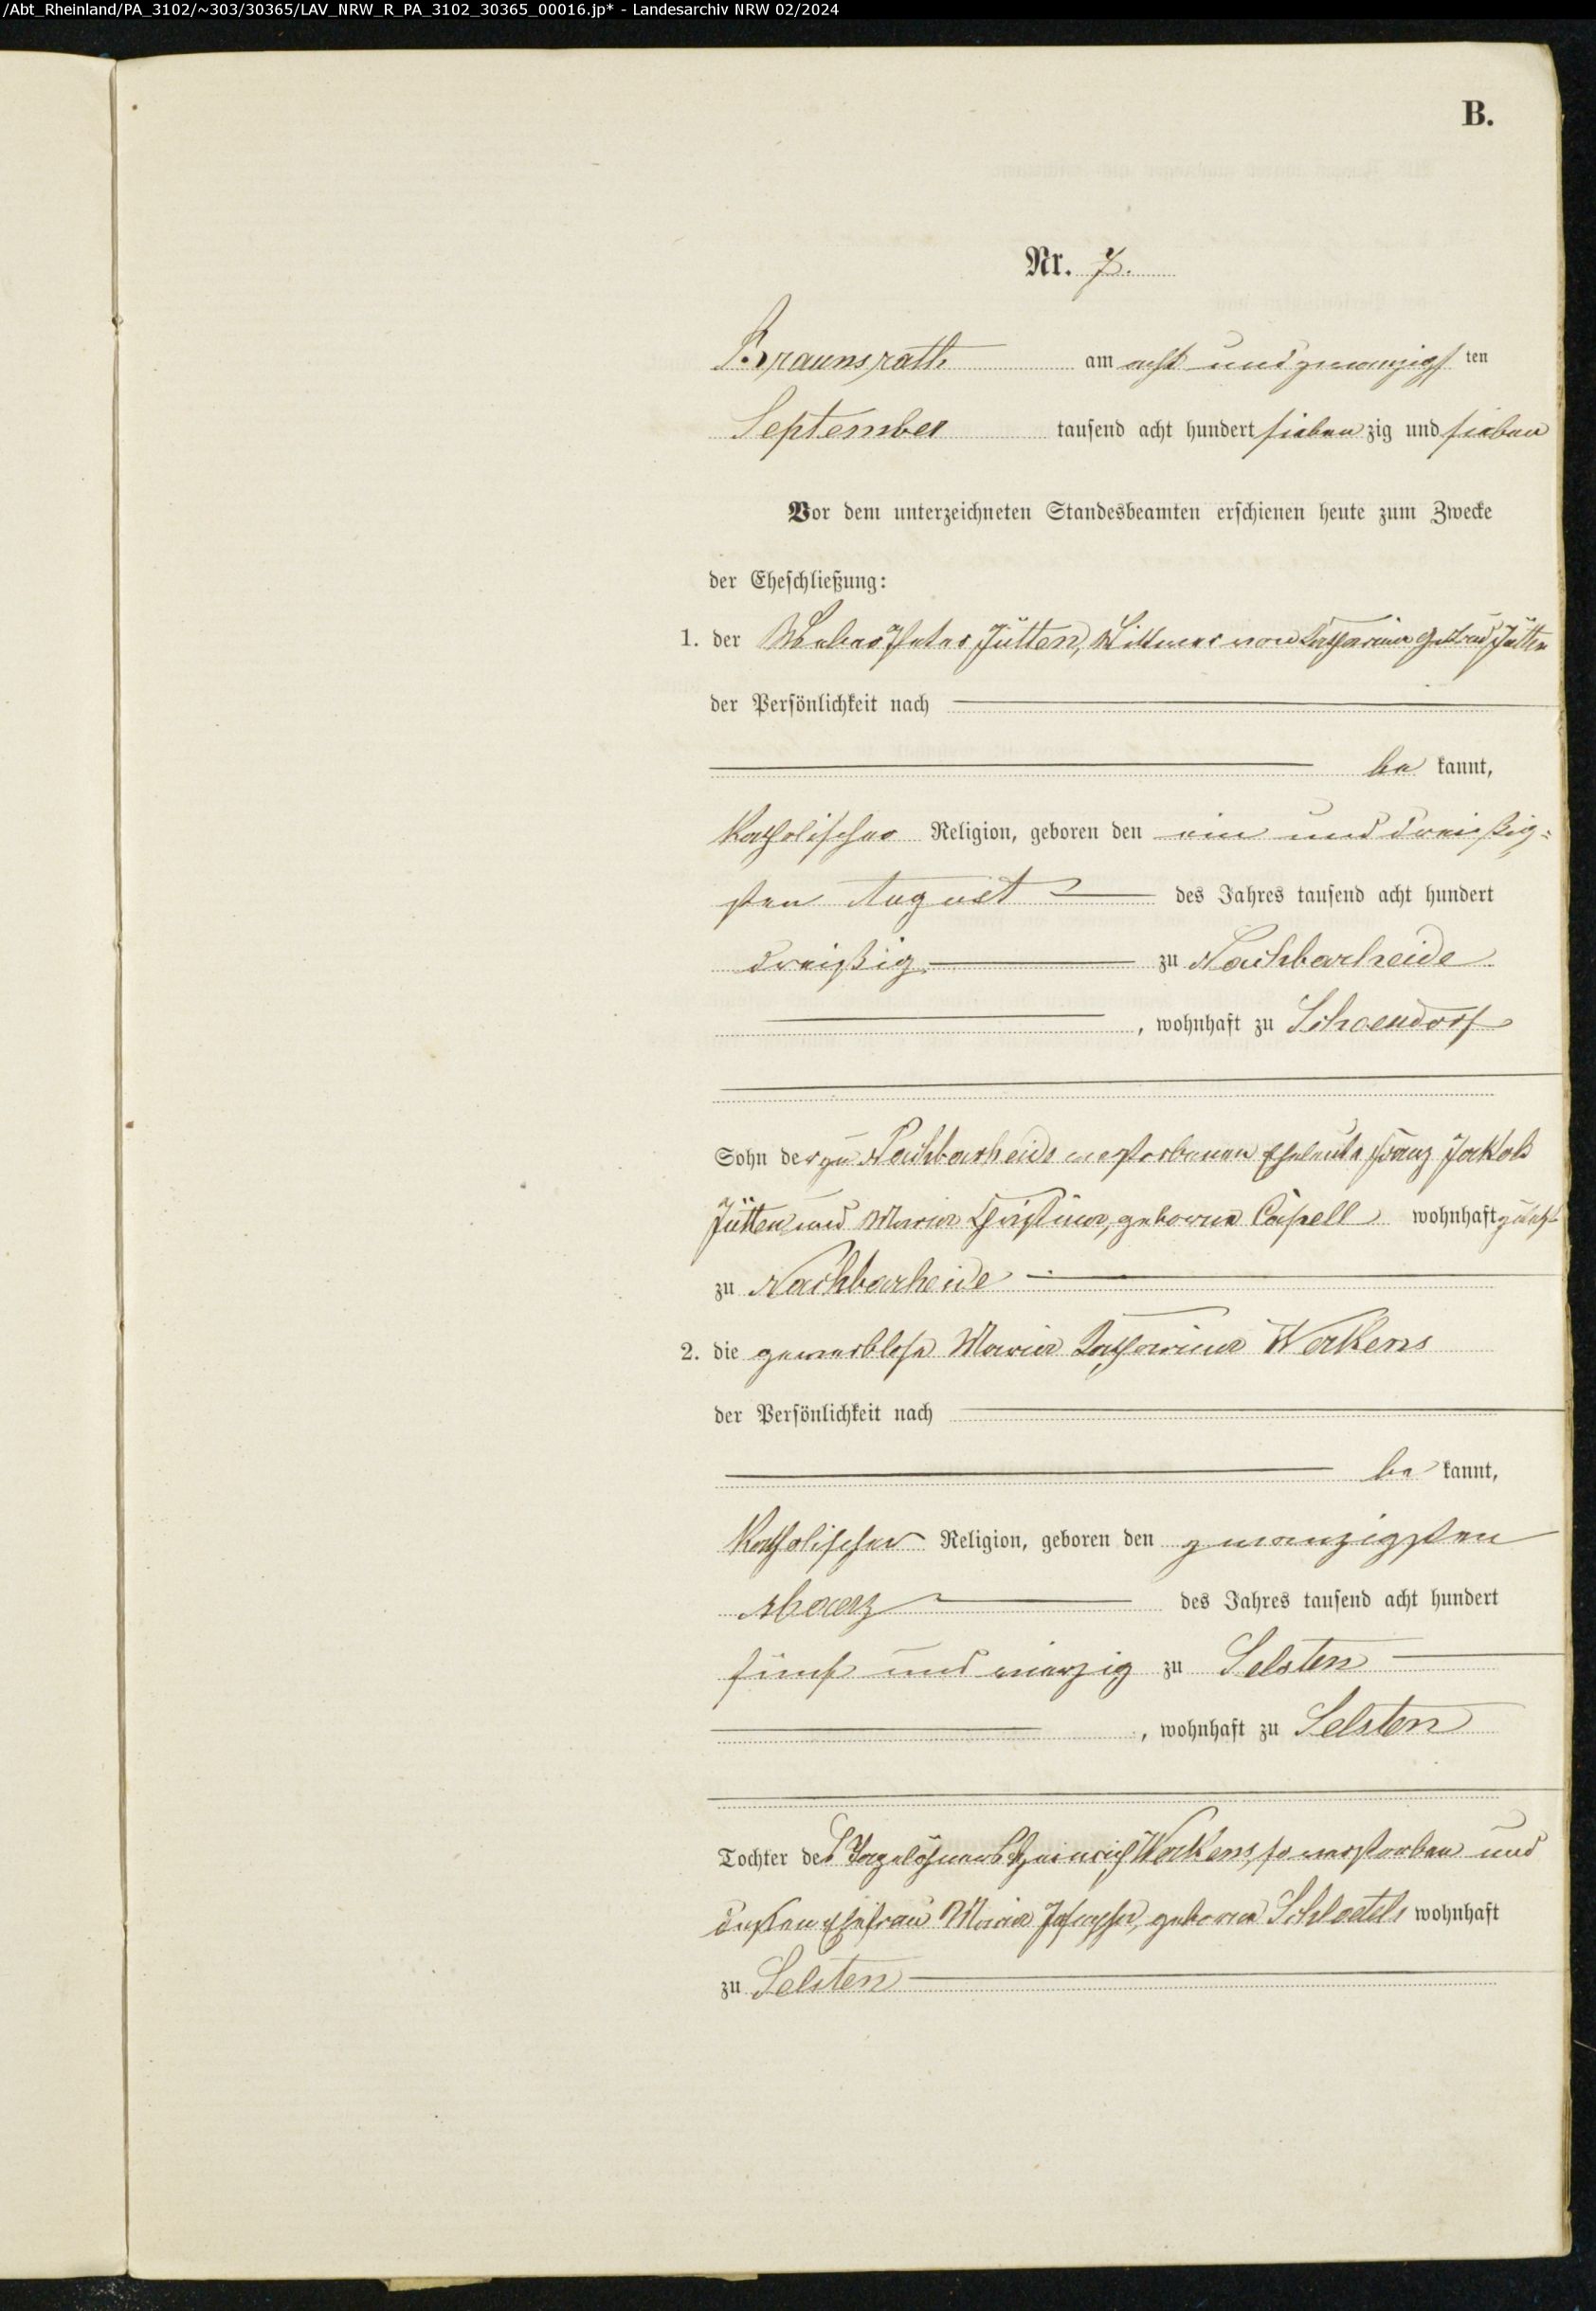 /Abt_Rheinland/PA_3102/~303/30365/LAV_NRW_R_PA_3102_30365_00016.jp* - Landesarchiv NRW 02/2024
B.
Nr. 7.
Braunsrath am acht und zwanzigsten
September tausend acht hundert siebenzig und sieben
Vor dem unterzeichneten Standesbeamten erschienen heute zum Zwecke
der Eheschließung:
1. der Weber Peter Jütten, Wittwer von Catharina Gertrud Jütten
der Persönlichkeit nach
be kannt,
Katholischer Religion, geboren den ein und dreißig-
sten August des Jahres tausend acht hundert
dreißig zu Nachbarheide
, wohnhaft zu Schoendorf
Sohn der zu Nachbarheide verstorbenen Eheleute Franz Jakob
Jütten und Maria Christina, geborene Capell wohnhaft zuletzt
zu Nachbarheide
2. die gewerblose Maria Catharina Werkens
der Persönlichkeit nach
be kannt,
Katholischer Religion, geboren den zwanzigsten
Maerz des Jahres tausend acht hundert
fünf und vierzig zu Selsten
, wohnhaft zu Selsten
Tochter des Tagelöhners Heinrich Werkens, so verstorben und
dessen Ehefrau Maria Josepha, geborene Schloetels wohnhaft
zu Selsten